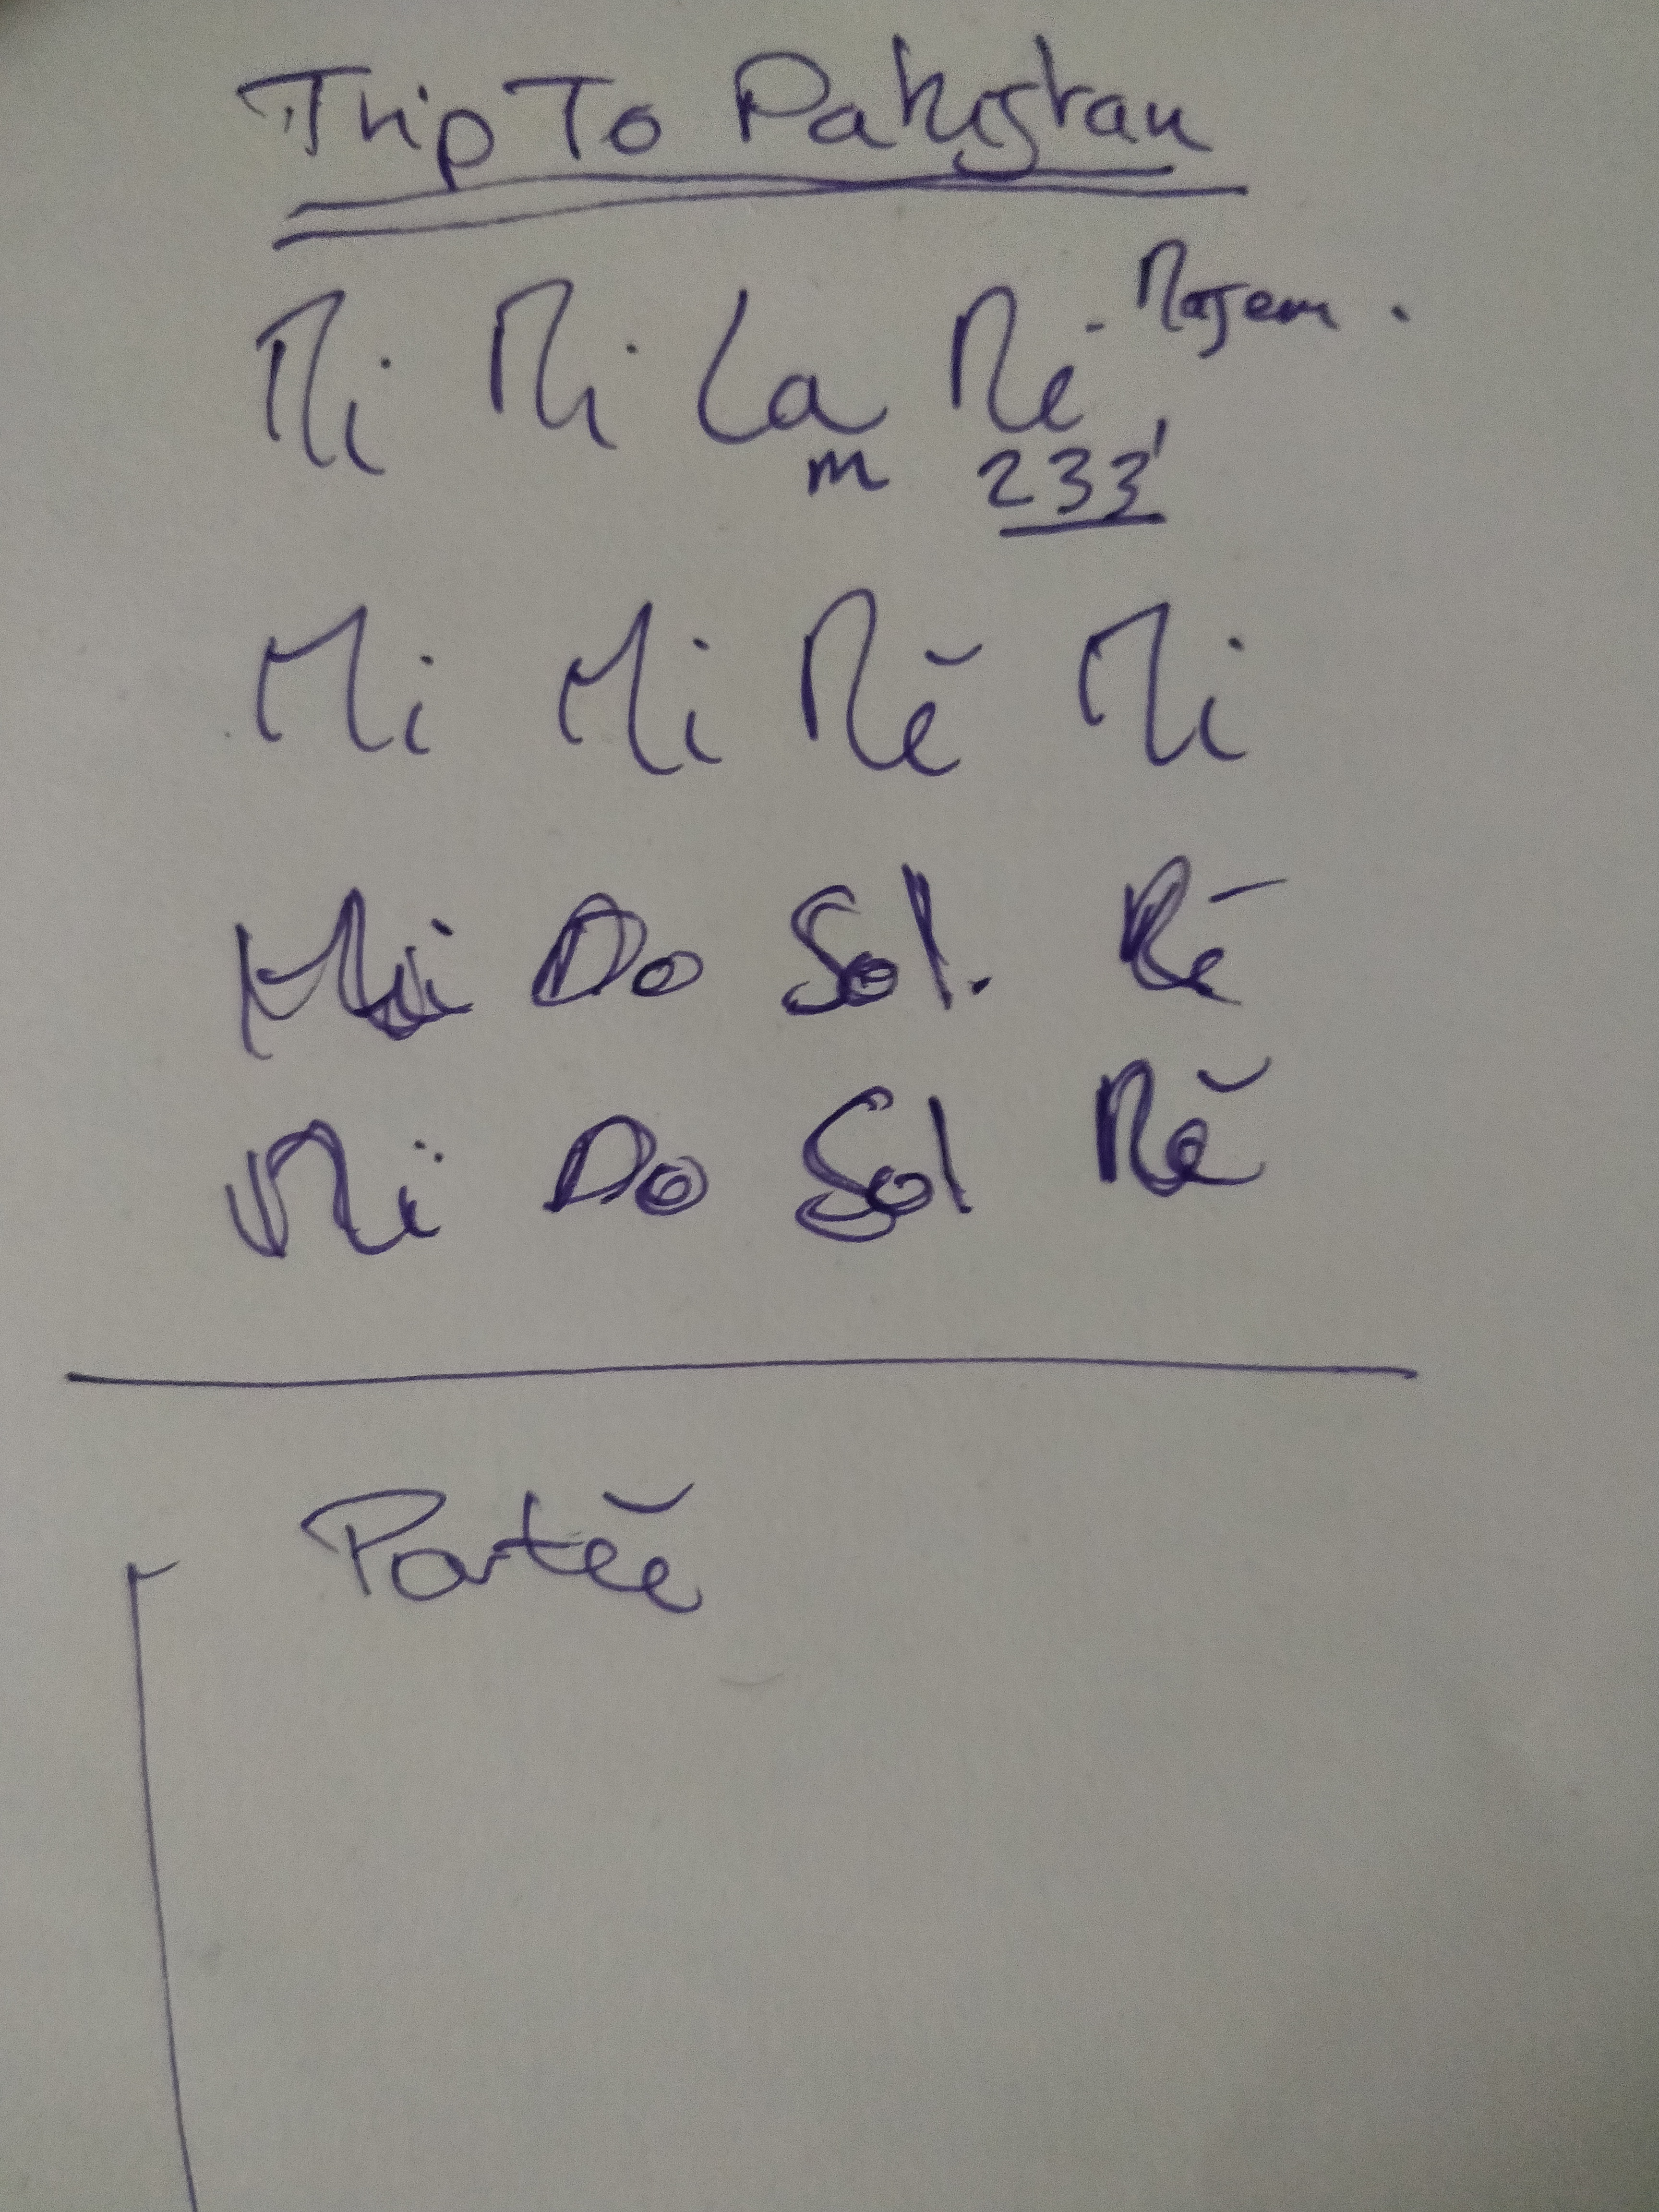 Trip To Pakistan
Mi Mi La Ré
m 233
Mi Mi Ré Mi
Mi Do Sol. Ré
Mi Do Sol Ré
Portée